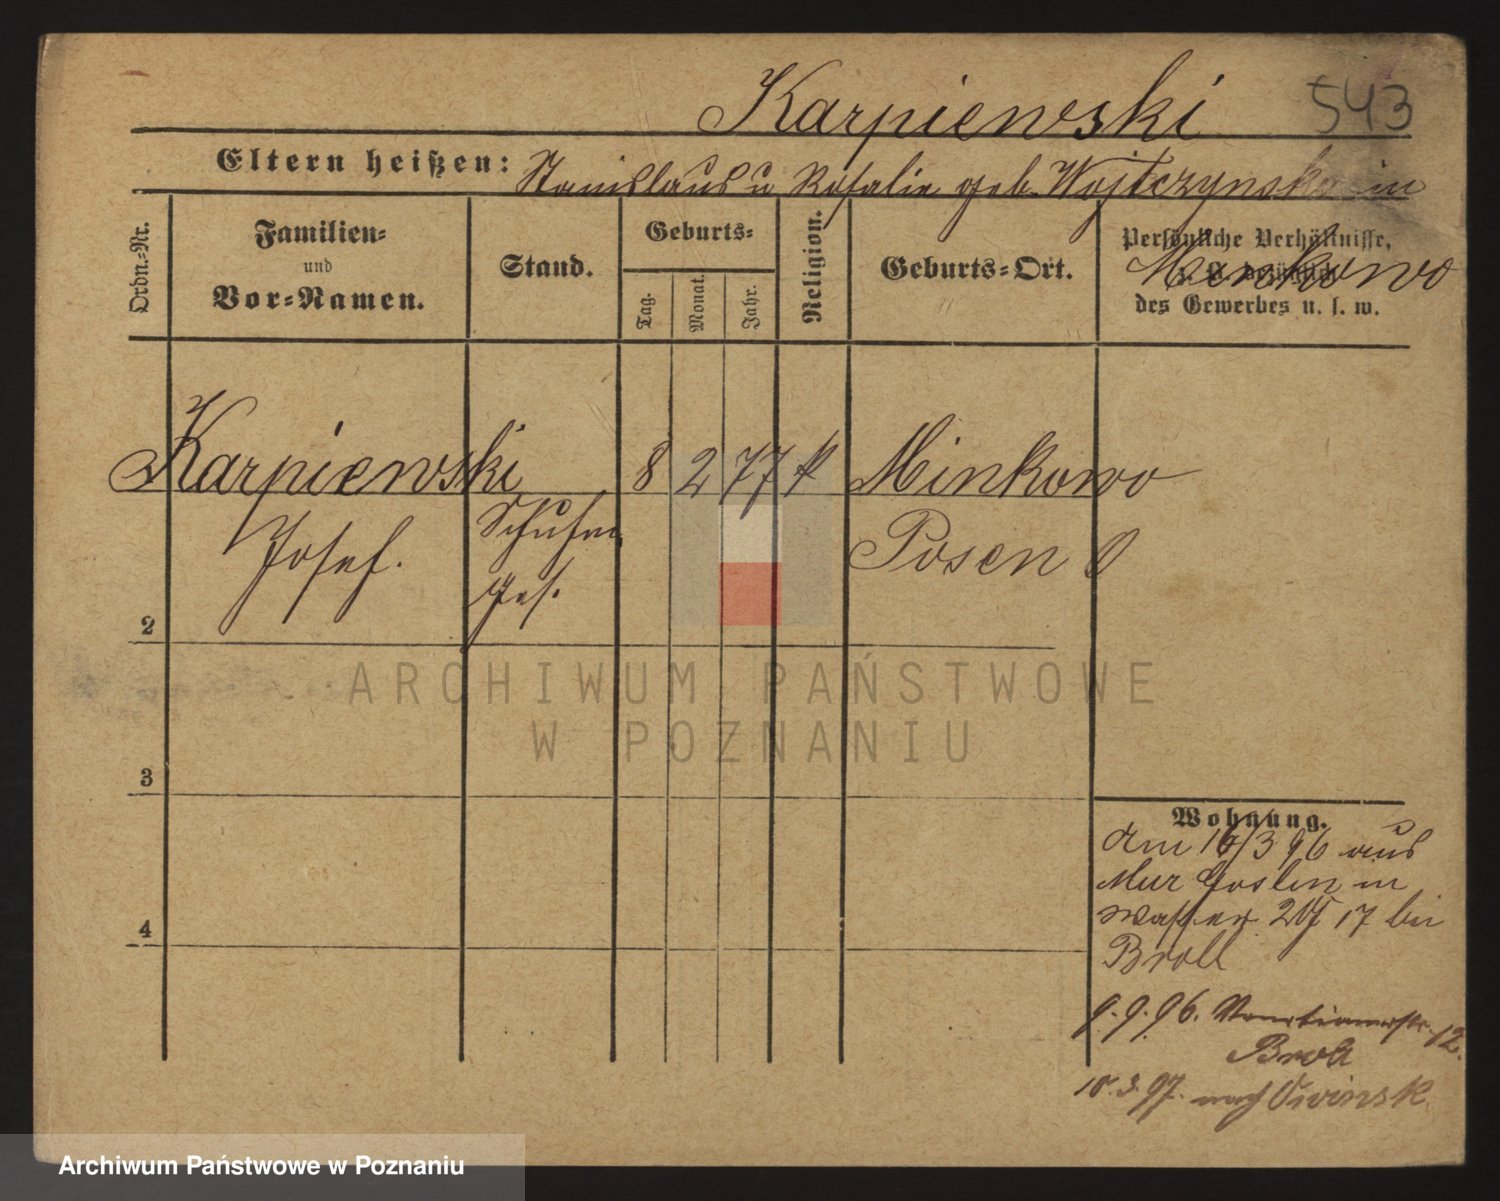 Karpiewski 543
Eltern heißen: Stanislaus u Rosalie geb. Wojtczynska in
Minkowo
Ordn.-Nr.
Familien-
und
Vor-Namen.
Stand.
Geburts-
Tag.
Monat.
Jahr.
Religion.
Geburts-Ort.
Persönliche Verhältnisse,
des Gewerbes u. s. w.
Karpiewski 8 2 77 k Minkowo
Josef. Schuhm. Posen O
ges.
2
3
4
Wohnung.
Am 16/3 96 aus
Mur Goslin in
Wasser 17 bei
Broll
9.9.96. Venetianerstr. 12.
Broll
10.3.97. nach
ARCHIWUM PAŃSTWOWE
W POZNANIU
Archiwum Państwowe w Poznaniu